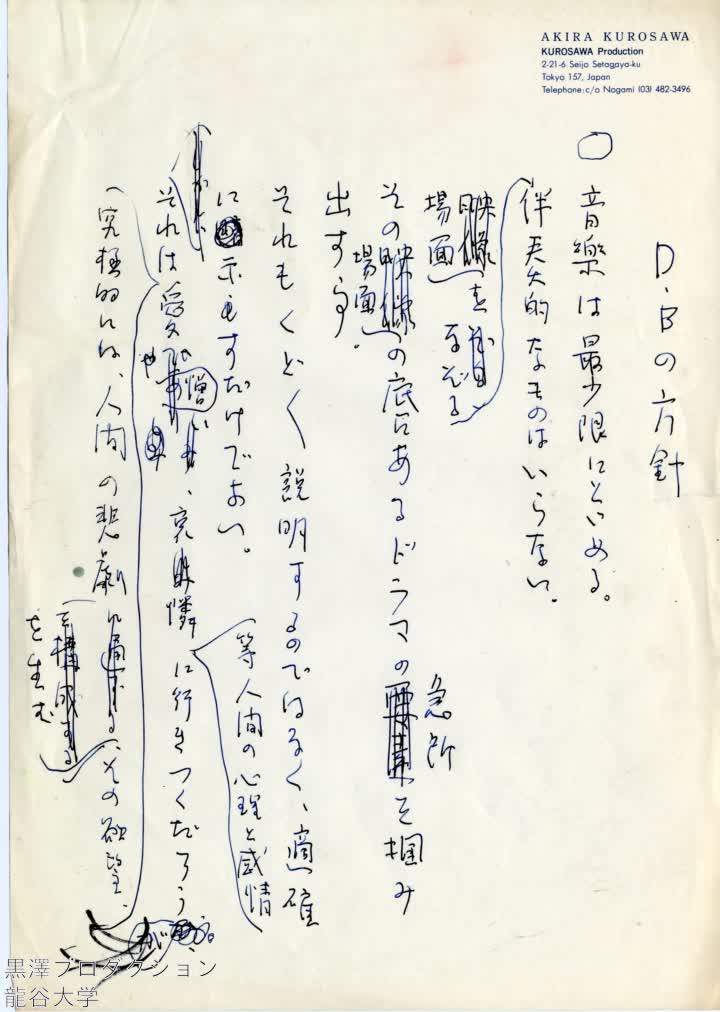 AKIRA KUROSAWA
KUROSAWA Production
2-21-6 Seijo Setagaya-ku
Tokyo 157, Japan
Telephone: c/o Nogami (03) 482-3496
D・Bの方針
○ 音樂は最少限にとゞめる。
伴奏的なものはいらない。
場面を
なぞる
その場面の底にあるドラマの急所を掴み
出す事。
それもくどく説明するのではなく、適確
に示もすだけでよい。
等人間の心理と感情
それは愛や憎、哀憐に行きつくだろうが
究極的には、人間の悲劇
を生む
その欲望、
黒澤プロダクション
龍谷大学